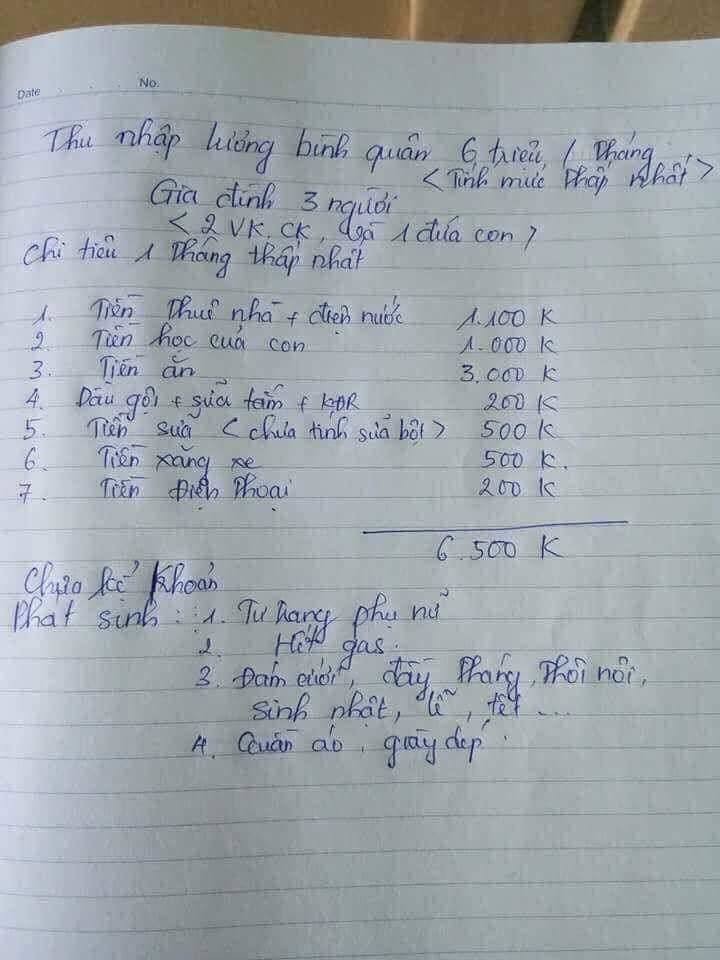 Date No.
Thu nhập lương bình quân 6 triệu / Tháng
< Tính mức thấp nhất >
Gia đình 3 người
< 2 VK. CK, và 1 đứa con >
Chi tiêu 1 Tháng thấp nhất
1. Tiền Thuê nhà + điện nước 1.100 K
2. Tiền học của con 1.000 K
3. Tiền ăn 3.000 K
4. Dầu gội + sữa tắm + KĐR 200 K
5. Tiền sữa < chưa tính sữa bột > 500 K
6. Tiền xăng xe 500 K.
7. Tiền Điện Thoại 200 K
6.500 K
Chưa kể Khoản
Phát sinh : 1. Tư trang phụ nữ
2. Hết gas.
3. Đám cưới, đầy Tháng, Thôi nôi,
sinh nhật, lễ, tết ...
4. Quần áo, giày dép.